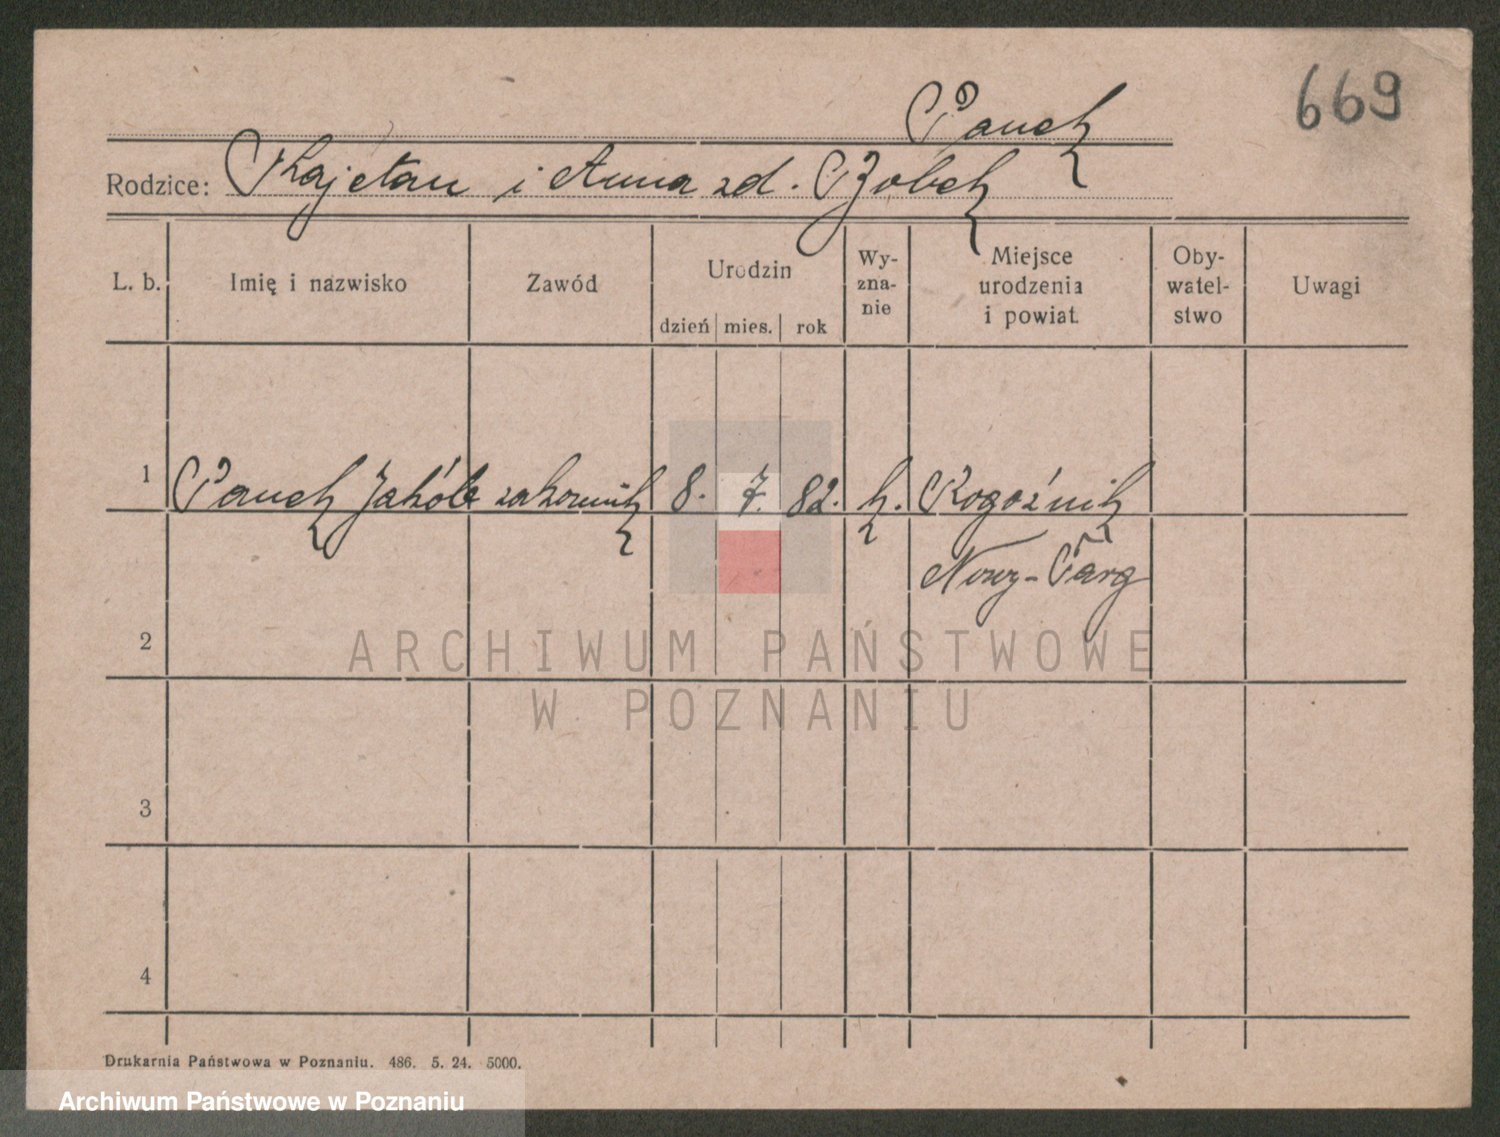 669
Panek
Rodzice: Kajetan i Anna zd. Bobek
L. b. Imię i nazwisko Zawód Urodzin dzień mies. rok Wy-zna-nie Miejsce urodzenia i powiat Oby-watel-stwo Uwagi
1 Panek Jakób zakonnik 8. 7. 82. k. Rogoźnik
Nowy-Targ
2
ARCHIWUM PAŃSTWOWE
W POZNANIU
3
4
Drukarnia Państwowa w Poznaniu. 486. 5. 24. 5000.
Archiwum Państwowe w Poznaniu